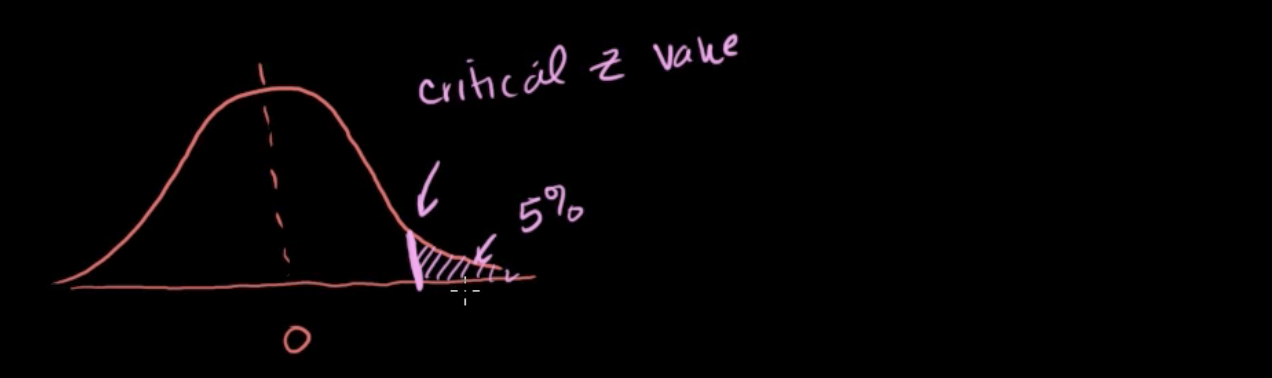 critical z value
5%
0